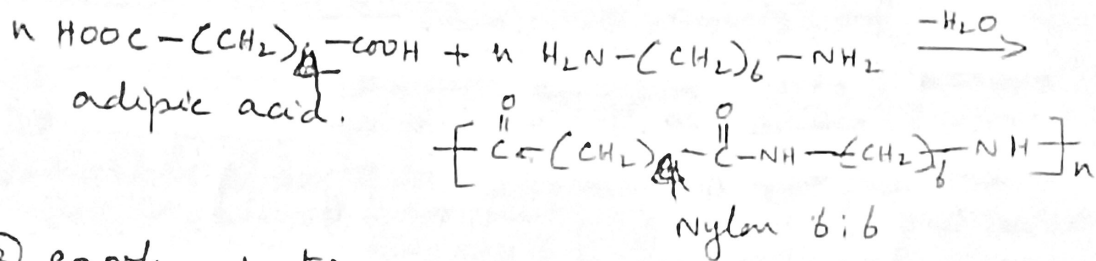 n HOOC-(CH₂)₄-COOH + n H₂N-(CH₂)₆-NH₂ -H₂O →
adipic acid.
[C(=O)-(CH₂)₄-C(=O)-NH-(CH₂)₆-NH]n
Nylon 6:6